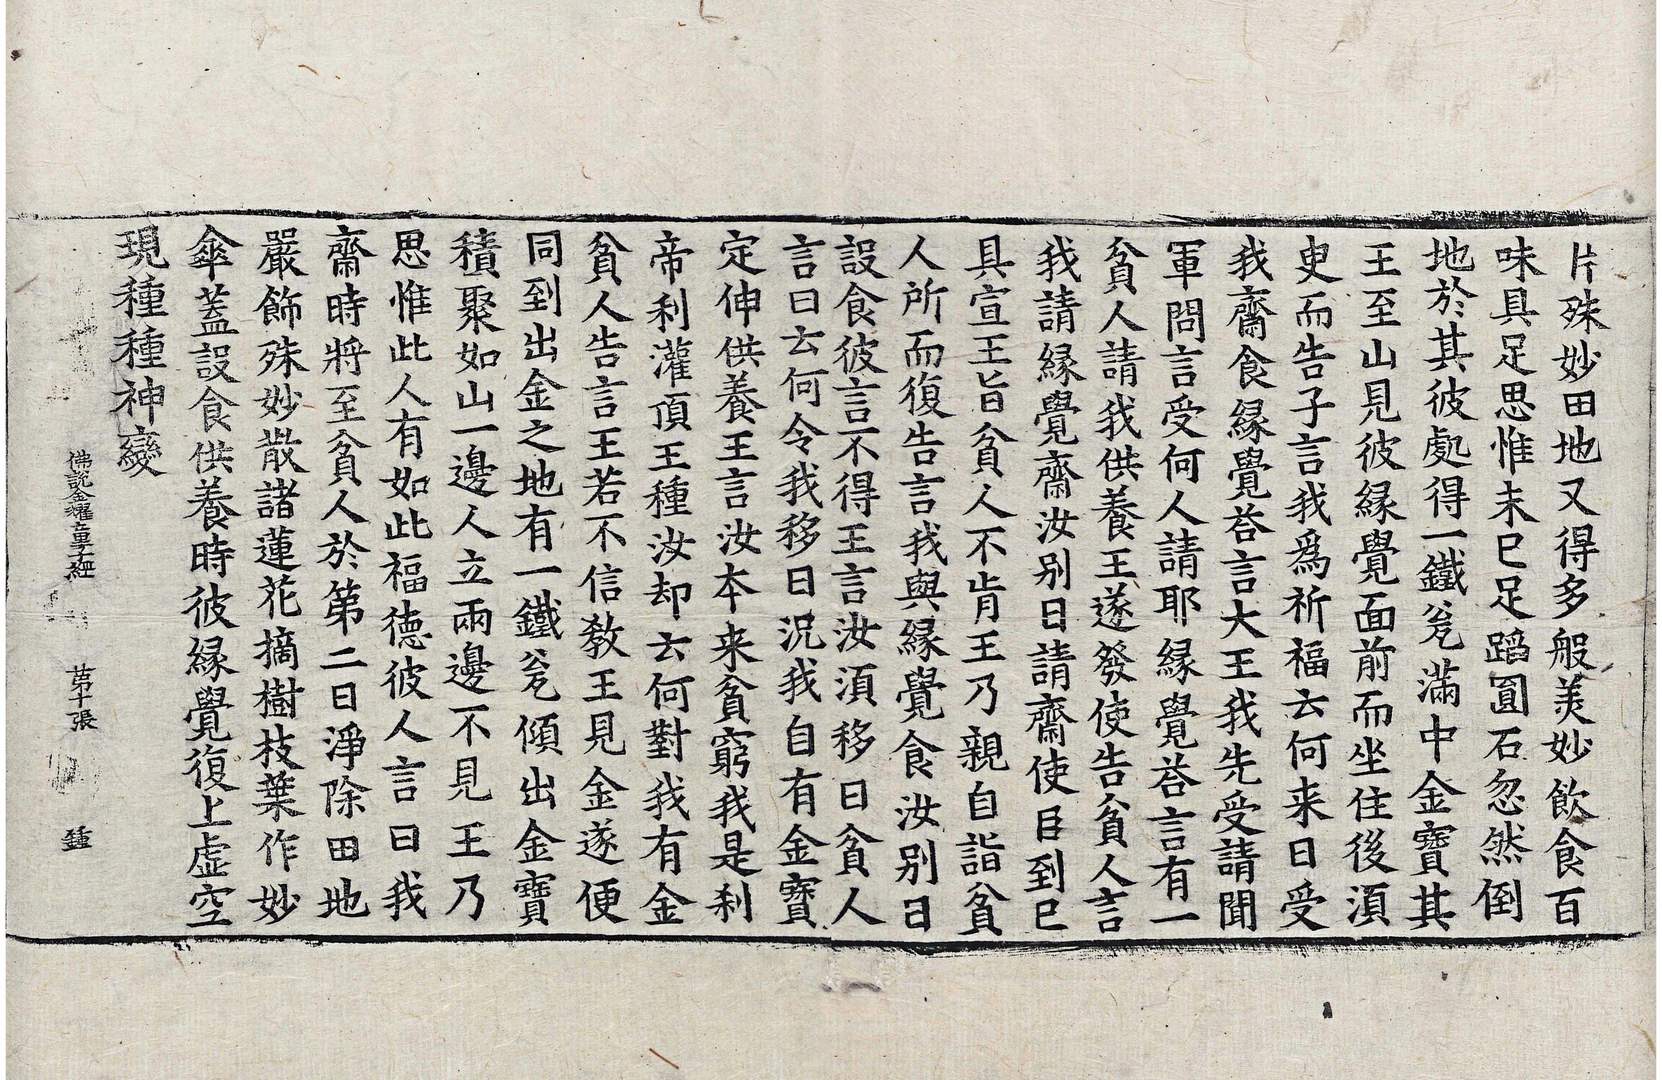 片殊妙田地又得多般美妙飲食百
味具足思惟未已足蹈圓石忽然倒
地於其彼處得一鐵瓮滿中金寶其
王至山見彼緣覺面前而坐住後湏
㬰而告子言我爲祈福云何来日受
我齋食緣覺荅言大王我先受請聞
軍問言受何人請耶緣覺荅言有一
貧人請我供養王遂發使告貧人言
我請緣覺齋汝别日請齋使臣到已
具宣王旨貧人不肯王乃親自詣貧
人所而復告言我與緣覺食汝别日
設食彼言不得王言汝湏移日貧人
言曰云何令我移日況我自有金寶
定伸供養王言汝本来貧窮我是刹
帝利灌頂王種汝却云何對我有金
貧人告言王若不信教王見金遂便
同到出金之地有一鐵瓮傾出金寶
積聚如山一邊人立兩邊不見王乃
思惟此人有如此福德彼人言曰我
齋時將至貧人於第二日淨除田地
嚴飾殊妙散諸蓮花摘樹枝葉作妙
傘蓋設食供養時彼緣覺復上虛空
現種種神變
佛說金耀童子經 苐十張 鍾